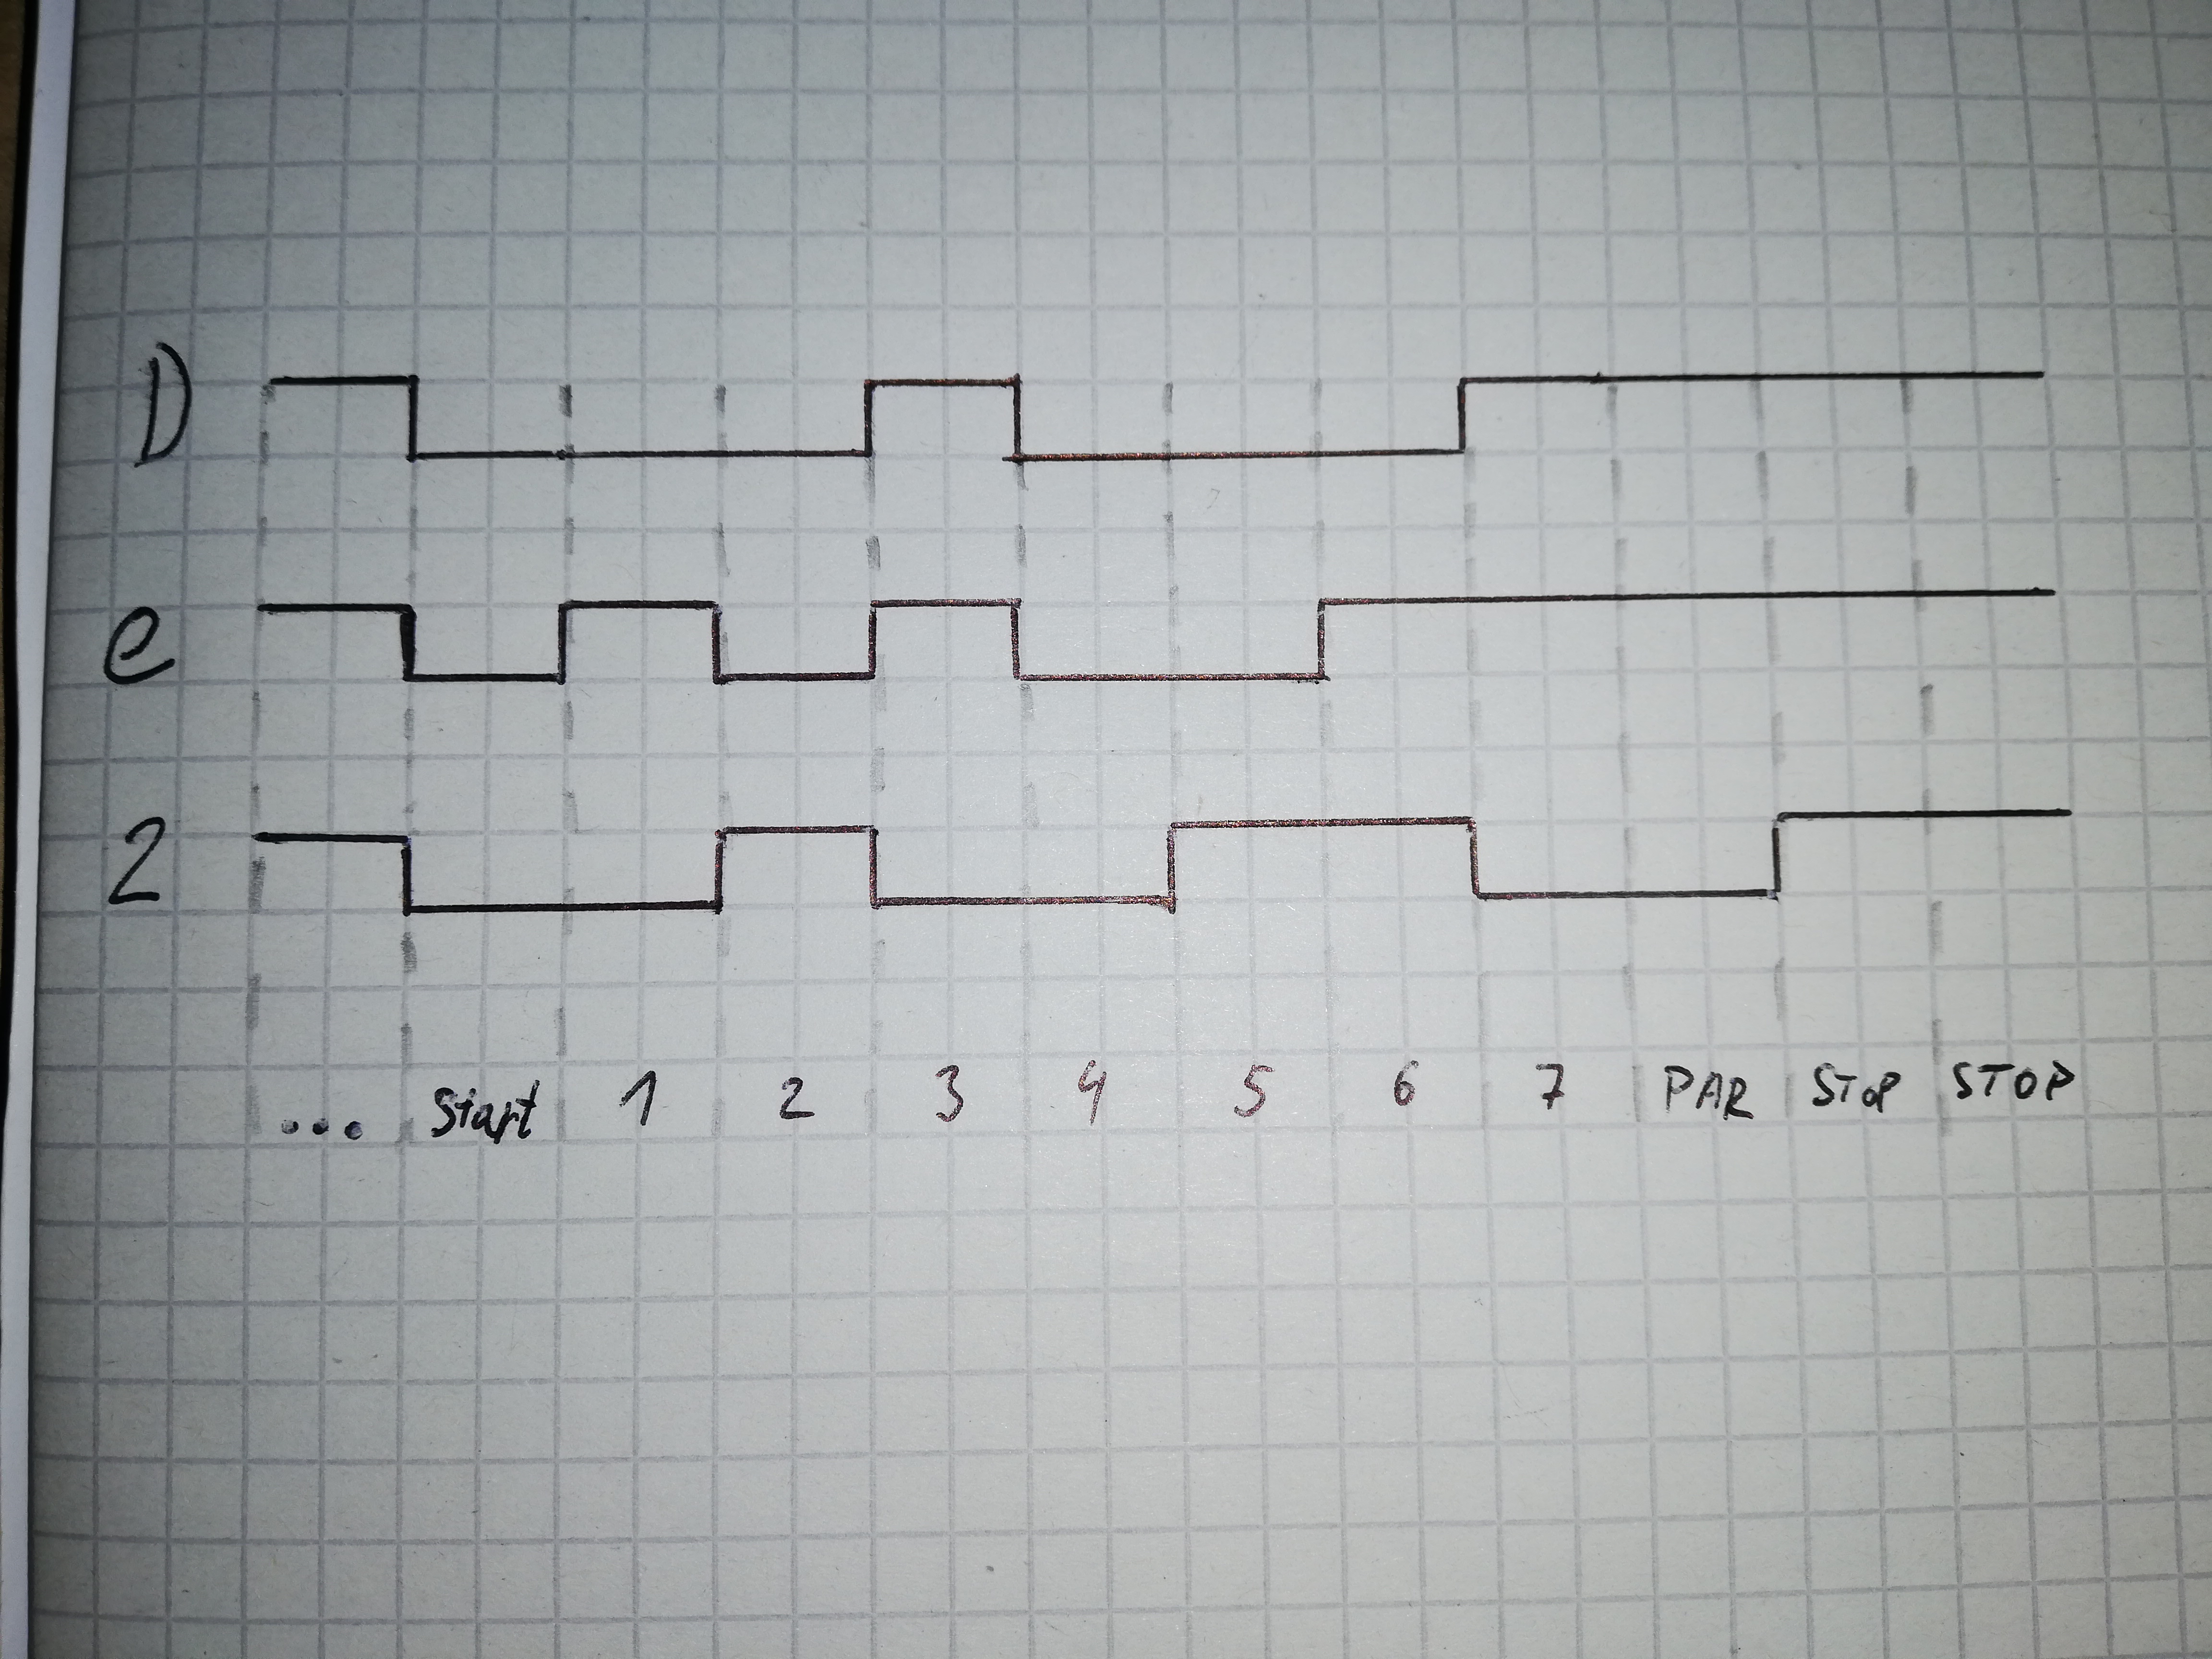 D
e
2
... Start 1 2 3 4 5 6 7 PAR STOP STOP